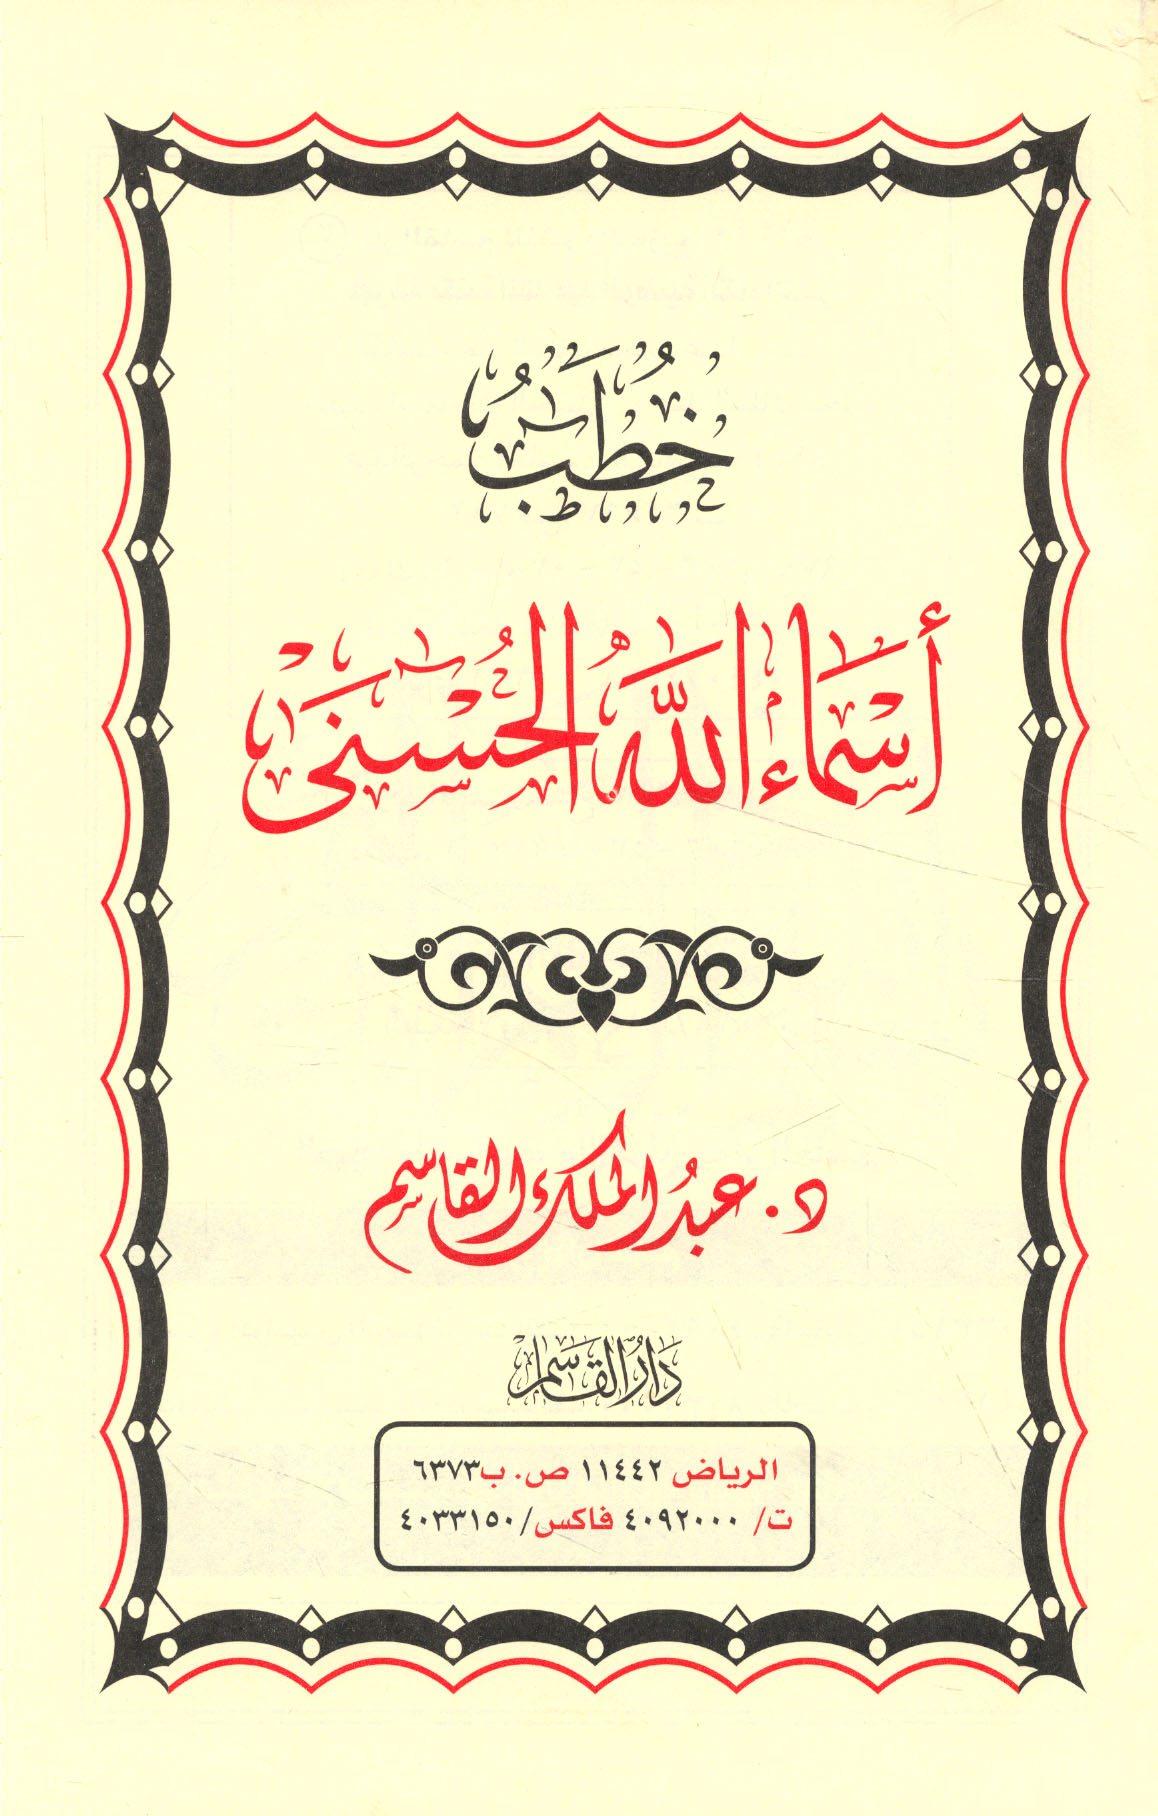 خُطَبُ
أَسْمَاءِ اللَّهِ الحُسْنَى
د. عبدُ الملك القاسم
دَارُ القَاسِم
الرياض ١١٤٤٢ ص. ب ٦٣٧٣
ت/ ٤٠٩٢٠٠٠ فاكس/ ٤٠٣٣١٥٠